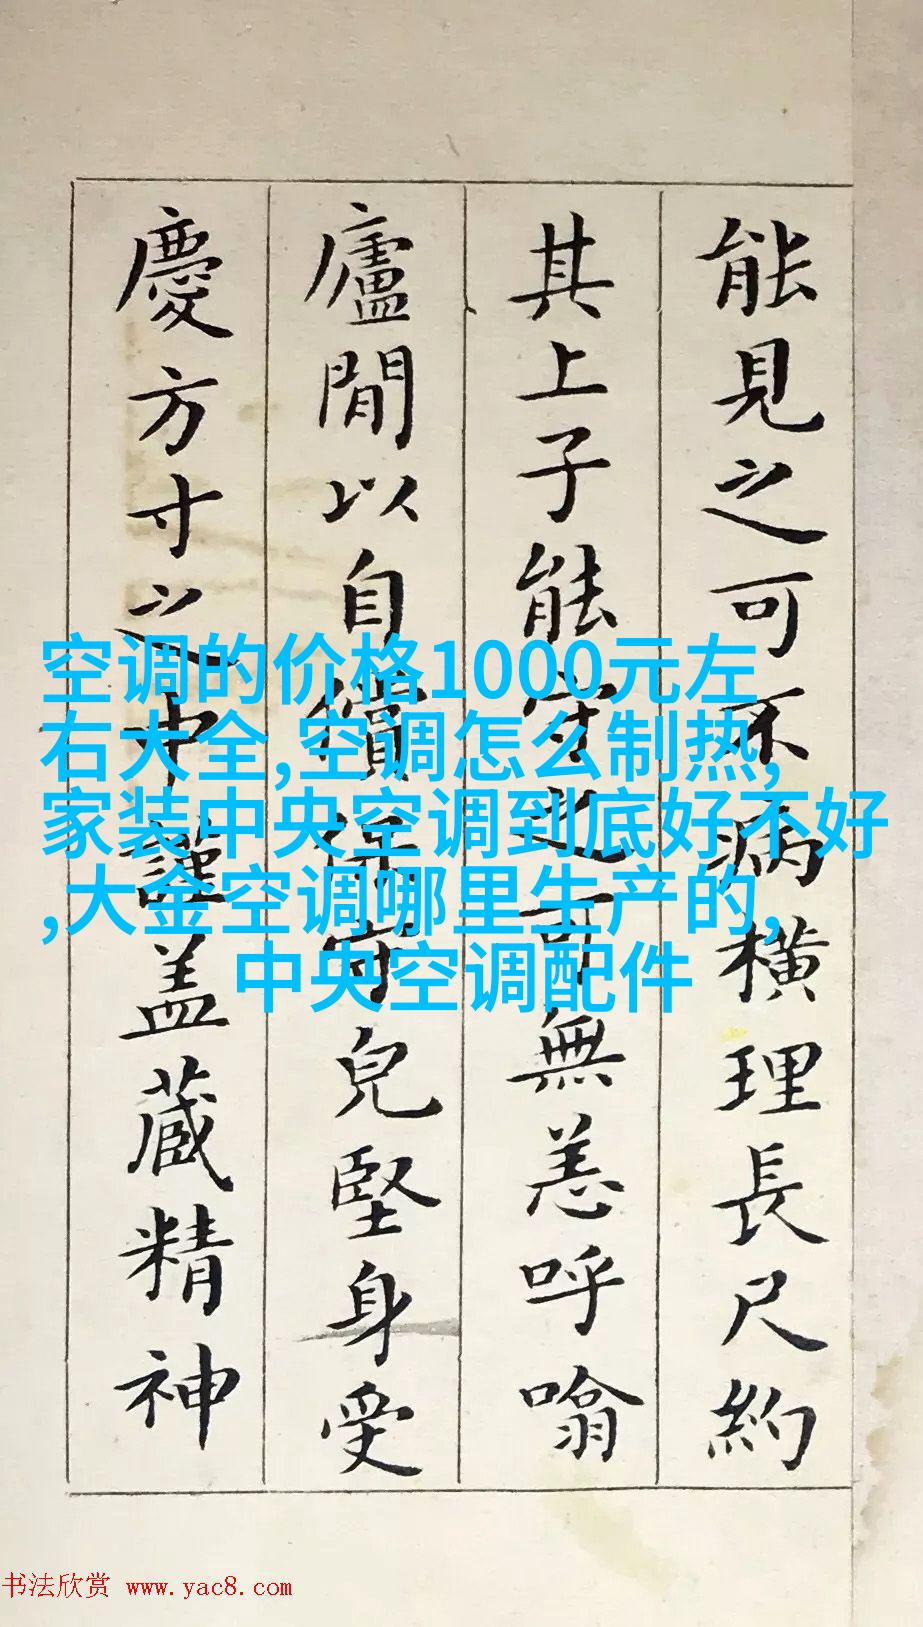 能見之可不病橫理長尺約
其上子能守之可無恙呼噏
廬閒以自償保守兒堅身受
慶方寸之中謹盖藏精神
空调的价格1000元左
右大全,空调怎么制热,
家装中央空调到底好不好
,大金空调哪里生产的,
中央空调配件
书法欣赏 www.yac8.com